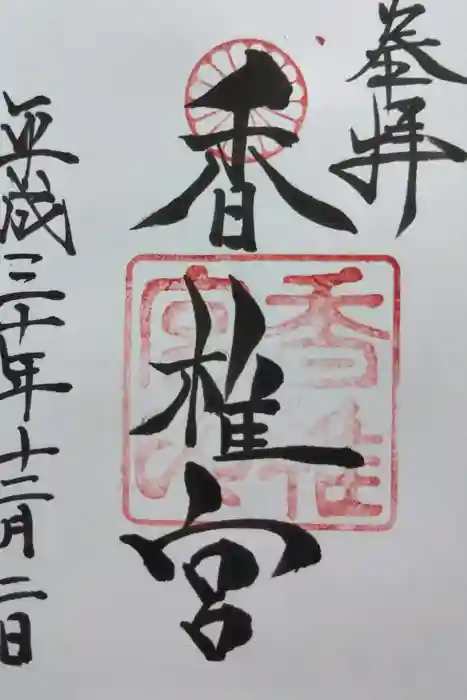 参拝
香椎宮
平成三十年十二月二日
香椎